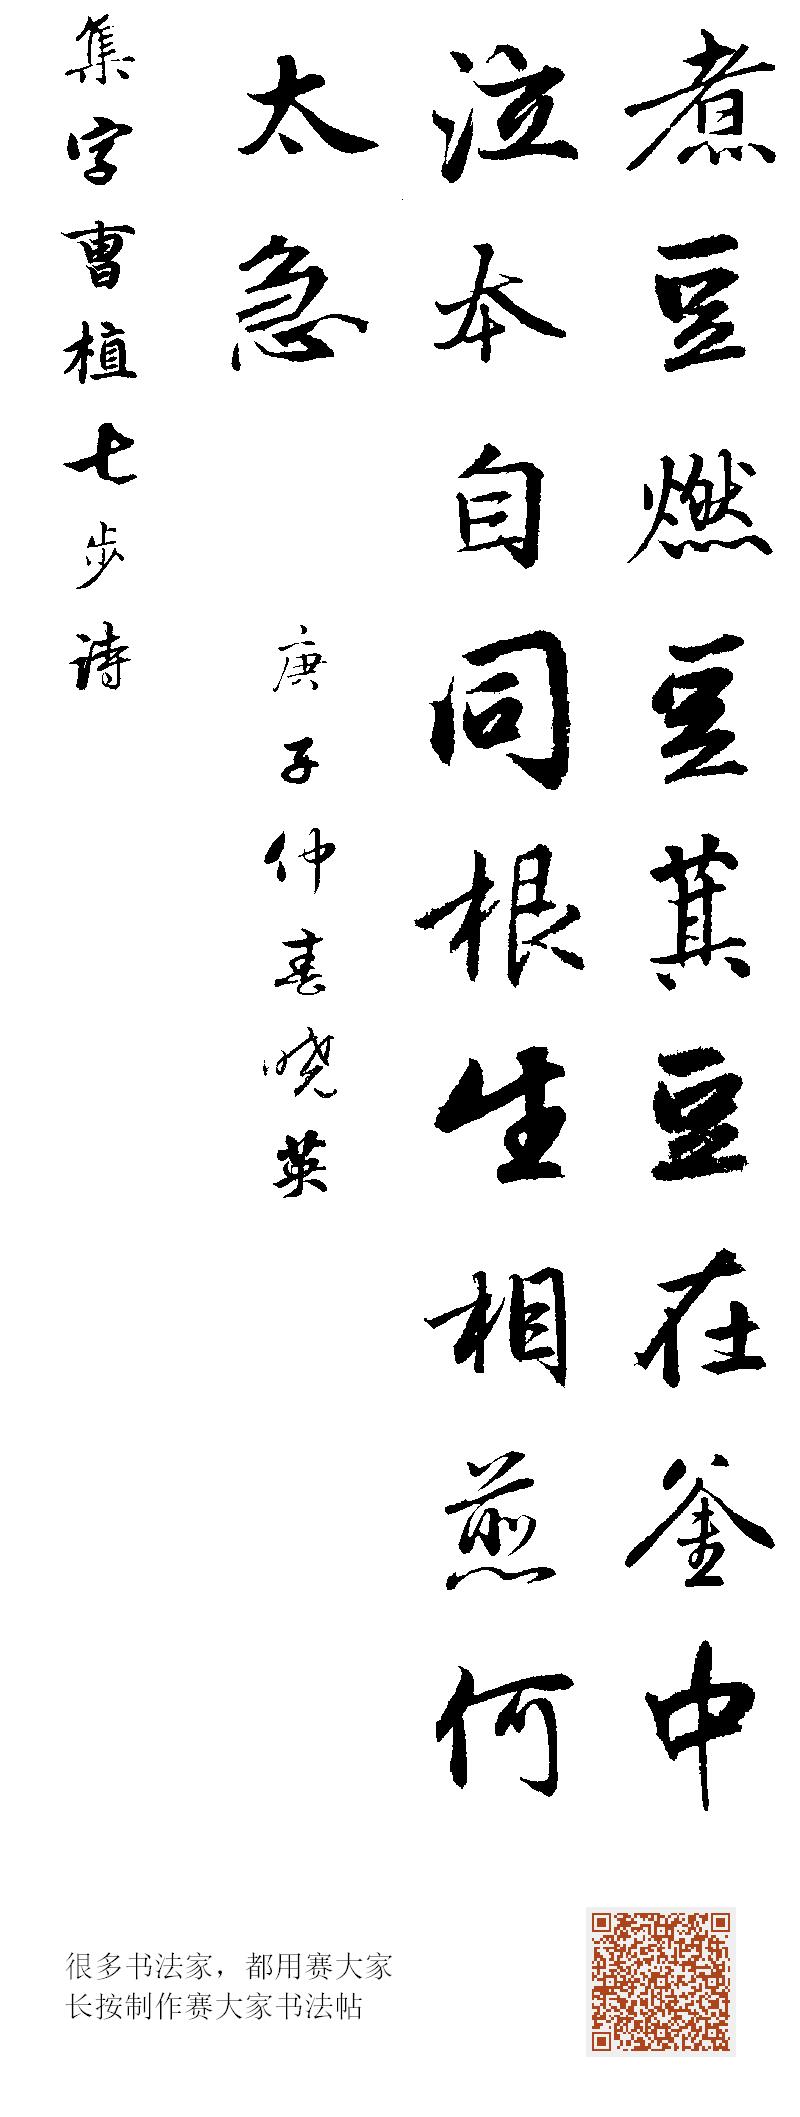 煮豆燃豆萁豆在釜中
泣本自同根生相煎何
太急
庚子仲春晓英
集字曹植七步诗
很多书法家，都用赛大家
长按制作赛大家书法帖